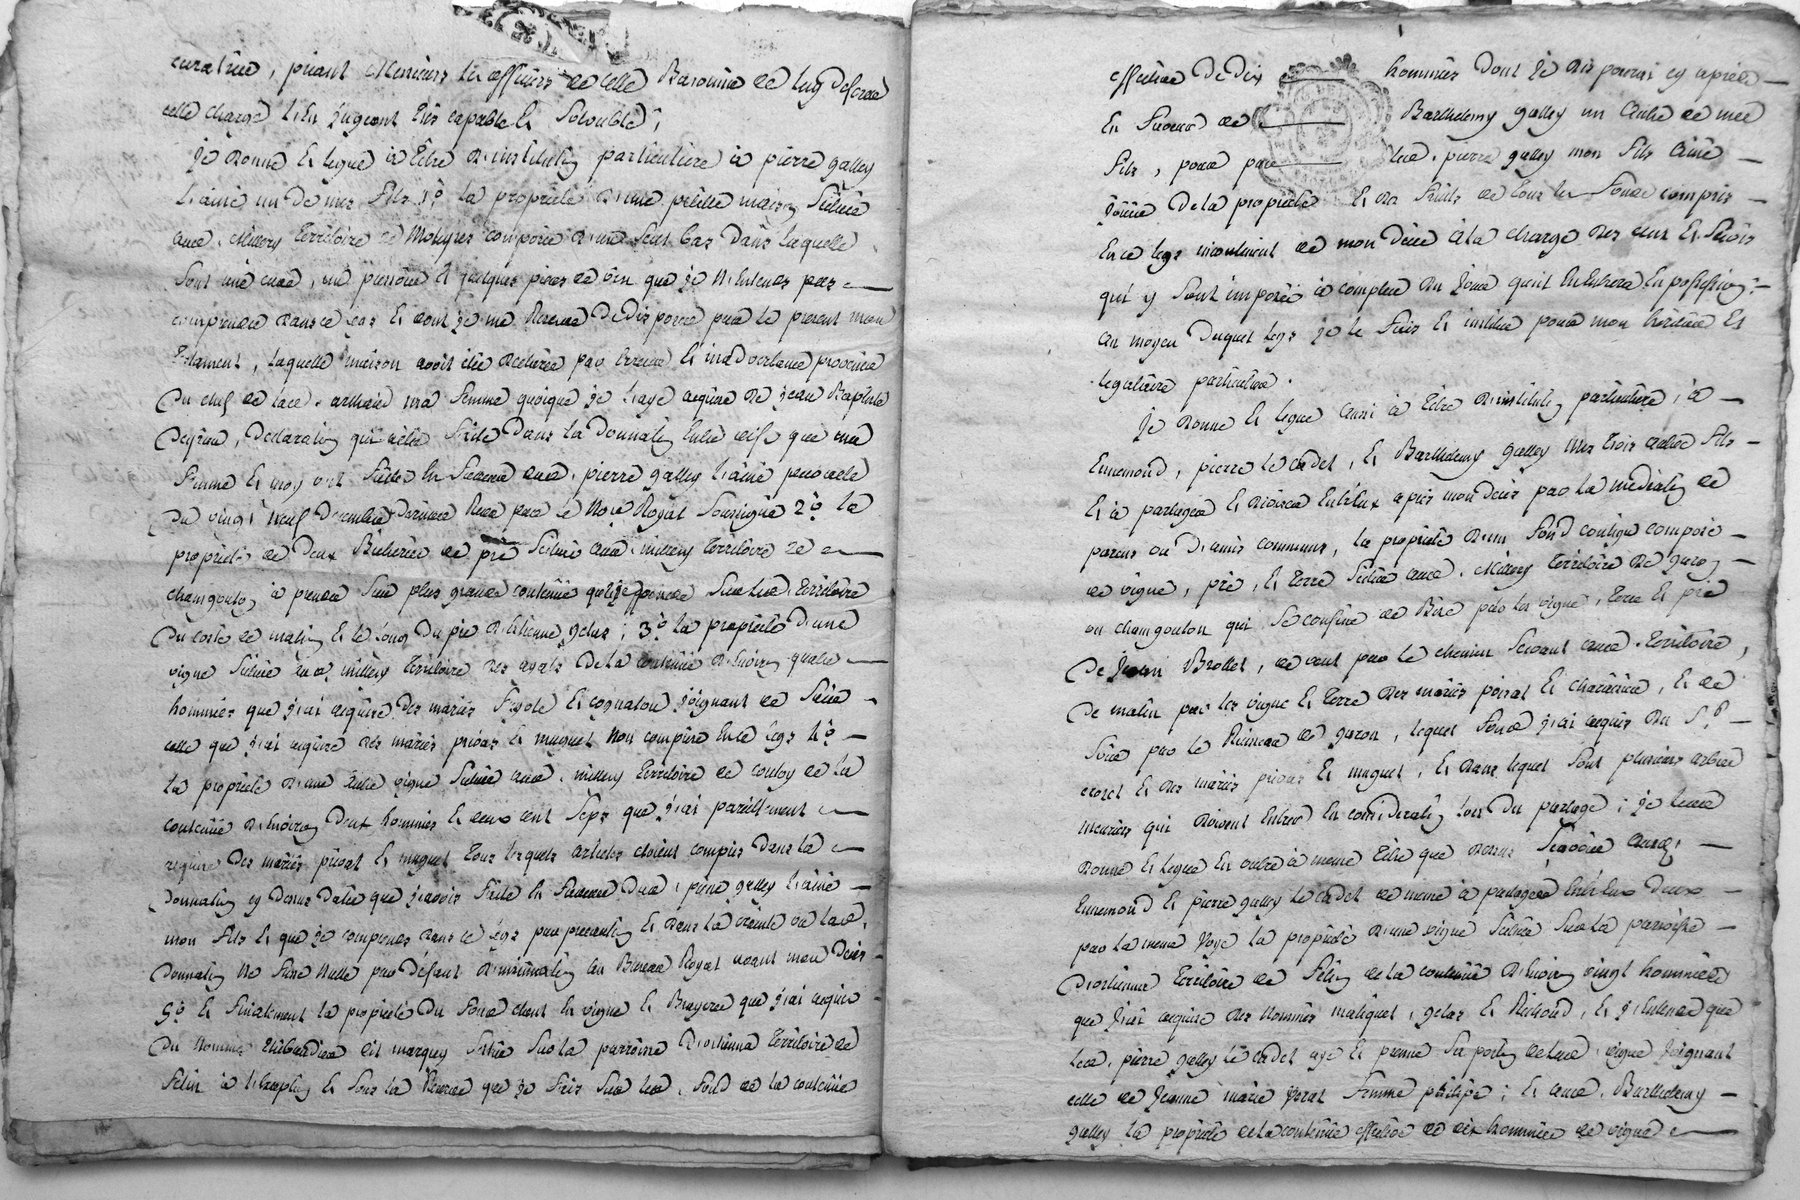 curatrice, priant Messieurs les officiers de celle Baronnie de luy deferer
celle charge l'en jugeant très capable & solvable;
Je donne & legue à titre d'institution particulière à pierre galley
l'ainé un de mes fils 1° la propriété d'une petite maison située
aud. Millery territoire de composée d'une seul bas dans laquelle
sont une cuve, un pressoire & quelques pieces de vin que je n'entends pas
comprendre dans ce legs & dont je me reserve de disposer par le present mon
testament, laquelle maison avoit été declarée par erreur & inadvertance provenir
du chef de lad. ma femme quoique je l'aye acquise de jean Baptiste
declaration qui a été faite dans la donnation entre vifs que ma
femme & moy ont faite en faveur dud. pierre galley l'ainé par acte
du vingt neuf decembre dernier reçu par le No.re Royal soussigné 2° la
propriété de deux Bicherées de pré situé aud. millery territoire de
chamgouton à prendre sur plus grande contenüe sur led. territoire
du coste de matin & le long du pré d'estienne gelas; 3° la propriété d'une
vigne située aud. millery territoire des de la contenüe d'environ quatre
hommées que j'ai acquise des mariés & joignant de soir
celle que j'ai acquise des mariés privas & muguet non comprise en ce legs 4°
la propriété d'une autre vigne située aud. millery territoire de de la
contenüe d'environ deux hommées & deux cent seps que j'ai pareillement
acquise des mariés & muguet tous lesquels articles étoient compris dans la
donnation cy dessus datée que j'avois faite en faveur dud. pierre galley l'ainé
mon fils & que je comprens dans ce legs par precaution & dans la crainte où lad.
donnation ne fusse nulle par défaut d'insinuation au Bureau Royal avant mon décès
5° & finalement la propriété du fond étant en vigne & Bruyere que j'ai acquis
du nommé dit marquy située sur la parroisse d'ortienne territoire de
felin à l'exception & sous la reserve que je fais sur led. fond de la contenüe
effective de dix hommées dont je disposerai cy après
en faveur de Barthelemy galley un autre de mes
fils, pour par led. pierre galley mon fils ainé
jouir de la propriété & des fruits de tous les fonds compris
en ce legs incontinent de mon décès à la charge des cens & servis
qui y sont imposés à compter du jour qu'il entrera en possession;
au moyen duquel legs je le fais & institue pour mon héritier &
legataire particulier.
Je donne & legue aussi à titre d'institution particulière, à
Ennemond, pierre le cadet, & Barthelemy galley mes trois autres fils
& à partager & diviser entr'eux après mon décès par la médiation de
parens ou d'amis communs, la propriété d'un fond contigu composé
de vigne, pré, & terre située aud. Millery territoire de garon
ou chamgouton qui se confine de Bise par les vigne, terre & pré
de Jean Brottet, de vent par le chemin servant aud. territoire,
de matin par les vigne & terre des mariés poirat & & de
soir par le Ruisseau de garon, lequel fond j'ai acquis du S.r
crozet & des mariés privas & muguet, & dans lequel sont plusieurs arbres
meuriers qui doivent entrer en consideration lors du partage; je leur
donne & legue en outre à meme titre que dessus sçavoir auxd.
Ennemond & pierre galley le cadet de meme à partager entr'eux deux
par la meme voye la propriété d'une vigne située sur la parroisse
d'ortienne territoire de felin de la contenüe d'environ vingt hommées
que j'ai acquise des nommés matiquet, gelas & & j'entends que
led. pierre galley le cadet aye & prenne sa portion de lad. vigne joignant
celle de Jeanne marie femme philipe; & aud. Barthelemy
galley la propriété de la contenüe effective de dix hommées de vigne